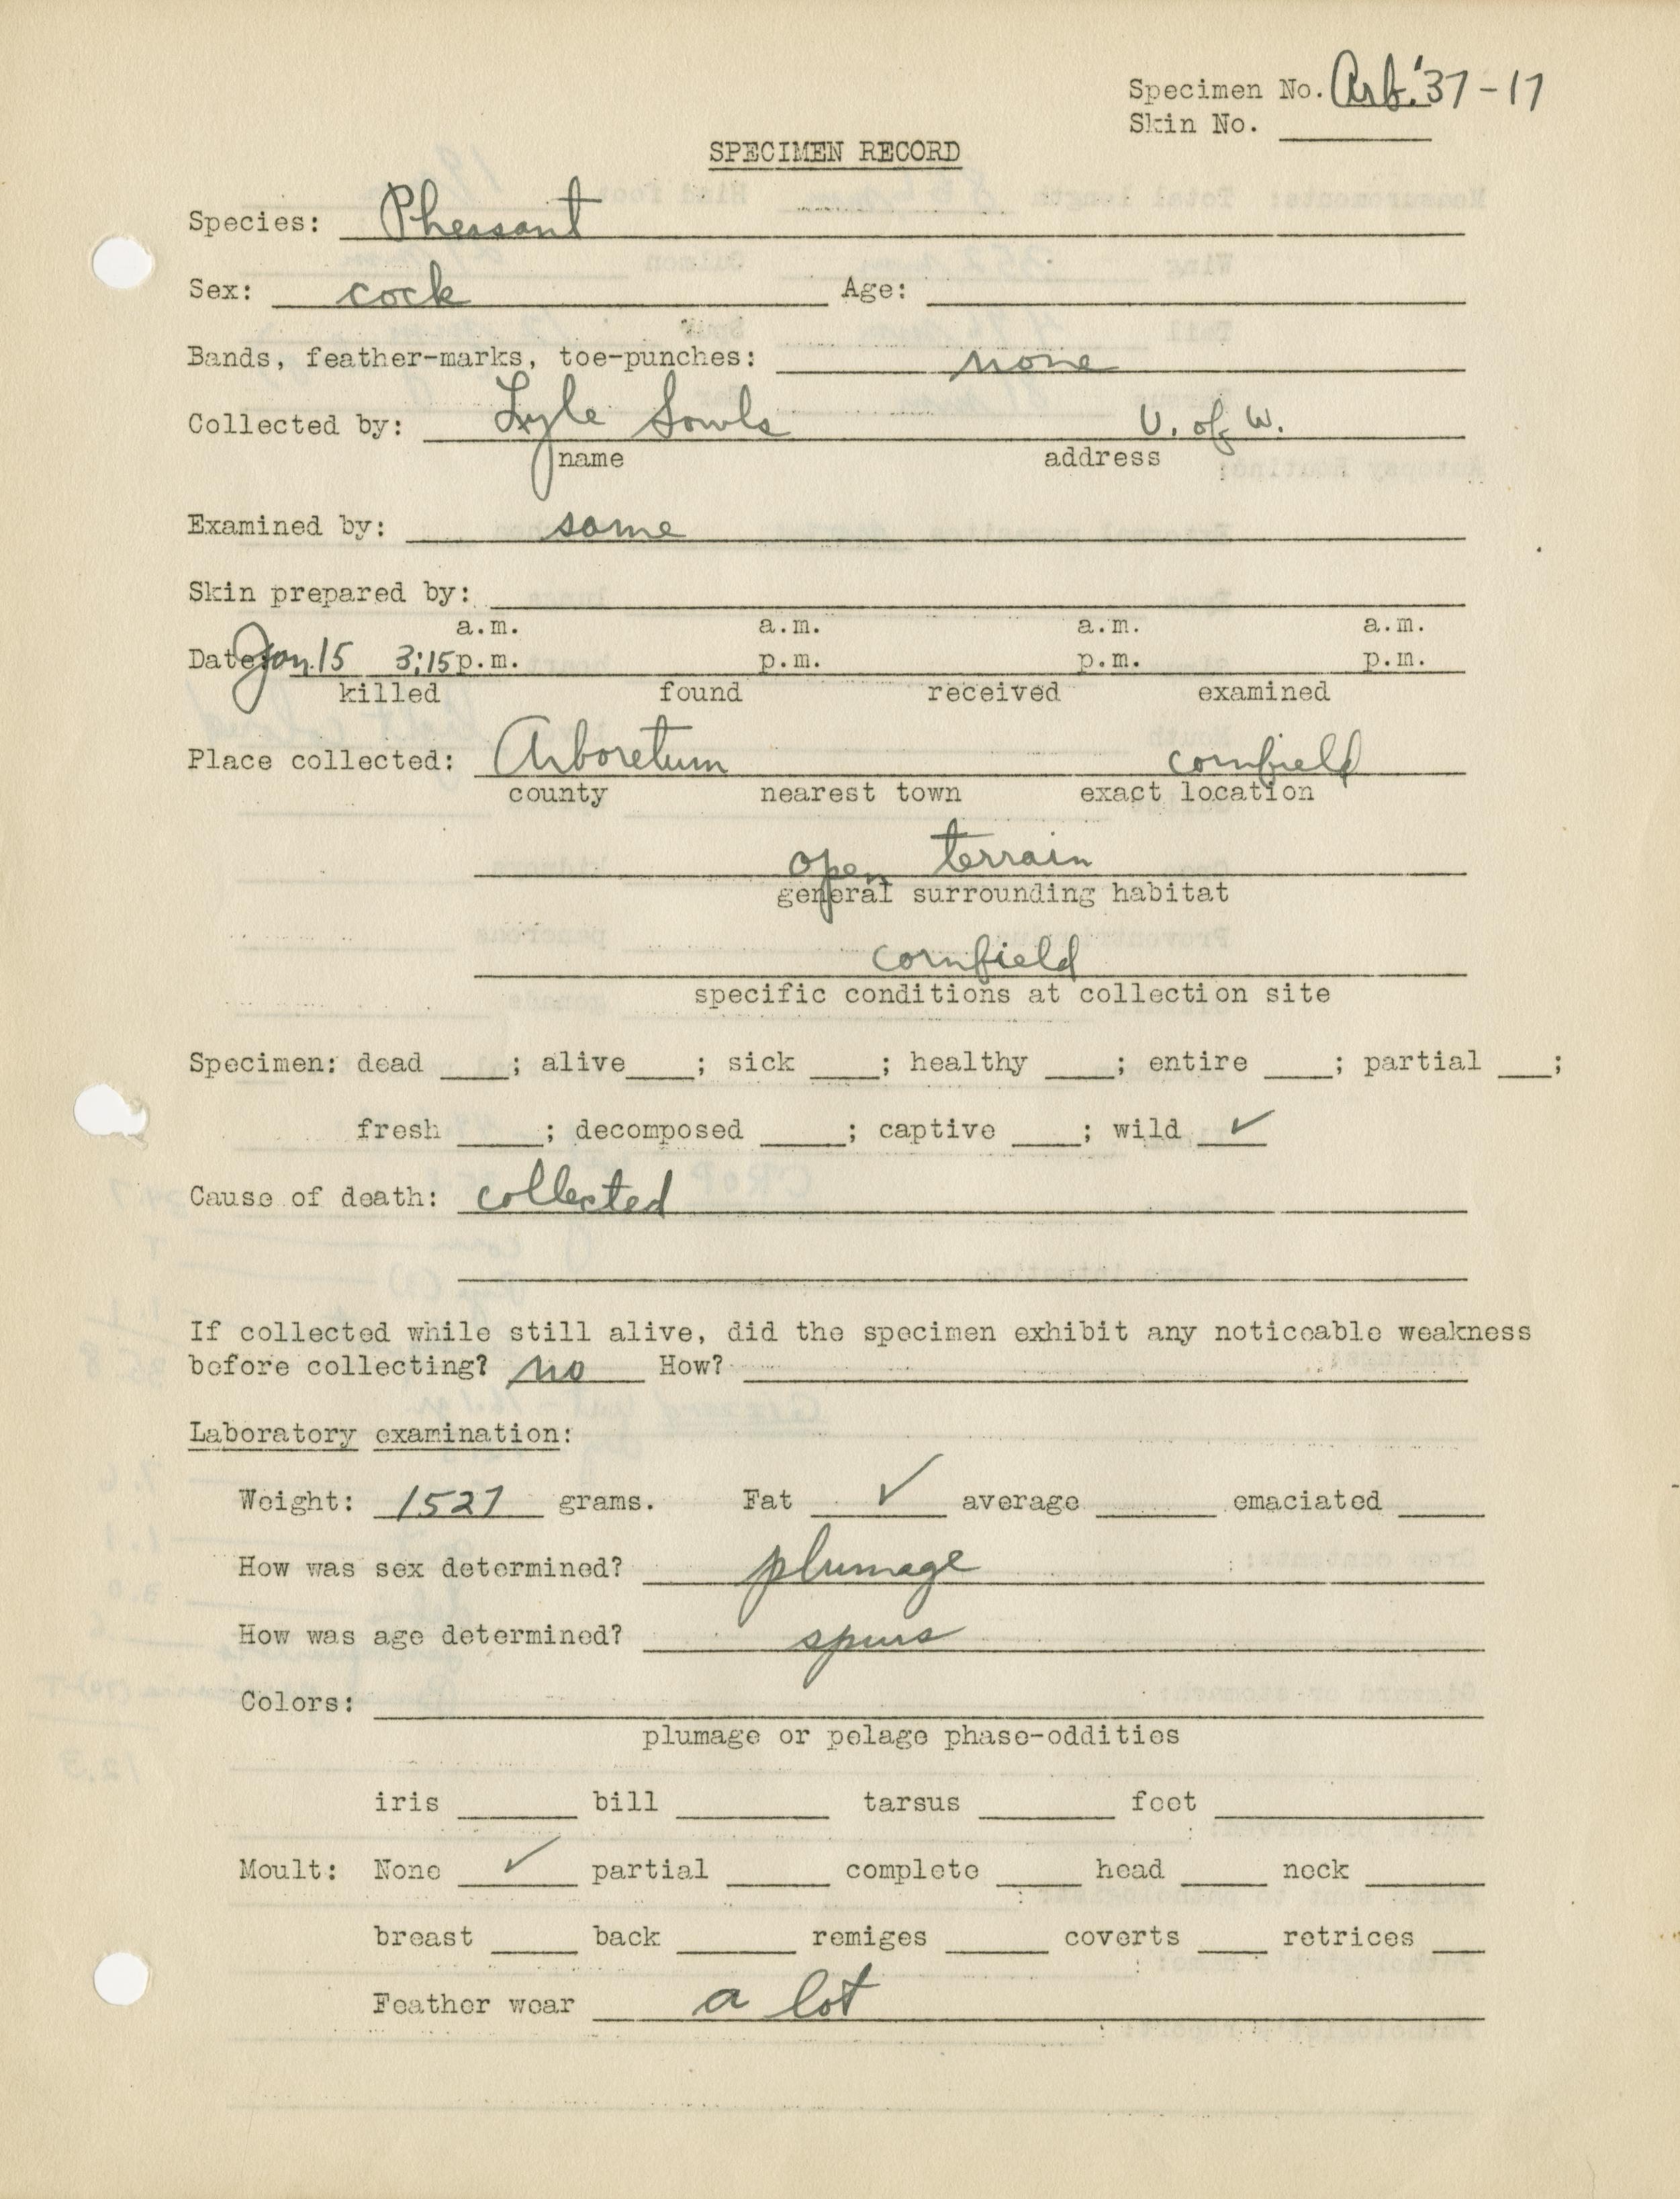 Specimen No. Arb. '37-17
Skin No. ____
SPECIMEN RECORD
Species: Pheasant
Sex: cock Age: ____
Bands, feather-marks, toe-punches: none
Collected by: Lyle Sowls U. of W.
name address
Examined by: same
Skin prepared by: ____
a.m. a.m. a.m. a.m.
Date: Jan. 15 3:15 p.m. p.m. p.m. p.m.
killed found received examined
Place collected: Arboretum cornfield
county nearest town exact location
open terrain
general surrounding habitat
cornfield
specific conditions at collection site
Specimen: dead ____; alive ____; sick ____; healthy ____; entire ____; partial ____;
fresh ____; decomposed ____; captive ____; wild ✓
Cause of death: collected
If collected while still alive, did the specimen exhibit any noticeable weakness
before collecting? no How? ____
Laboratory examination:
Weight: 1527 grams. Fat ✓ average ____ emaciated ____
How was sex determined? plumage
How was age determined? spurs
Colors: ____
plumage or pelage phase-oddities
iris ____ bill ____ tarsus ____ foot ____
Moult: None ✓ partial ____ complete ____ head ____ neck ____
breast ____ back ____ remiges ____ coverts ____ retrices ____
Feather wear a lot